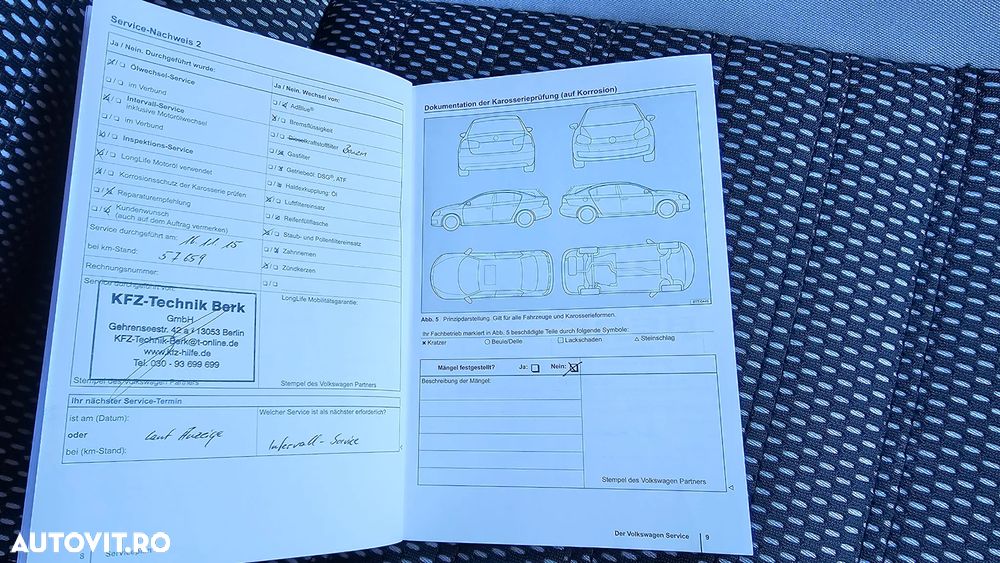 Service-Nachweis 2
Ja / Nein. Durchgeführt wurde:
Ölwechsel-Service
im Verbund
Intervall-Service
inklusive Motorölwechsel
im Verbund
Inspektions-Service
LongLife Motoröl verwendet
Korrosionsschutz der Karosserie prüfen
Reparaturempfehlung
Kundenwunsch
(auch auf dem Auftrag vermerken)
Service durchgeführt am: 16.11.15
bei km-Stand: 57659
Rechnungsnummer:
Service durchgeführt von:
KFZ-Technik Berk
GmbH
Gehrenseestr. 42 a * 13053 Berlin
KFZ-Technik-Berk@t-online.de
www.kfz-hilfe.de
Tel. 030 - 93 699 699
Stempel des Volkswagen Partners
Ja / Nein. Wechsel von:
AdBlue®
Bremsflüssigkeit
Dieselkraftstofffilter
Gasfilter
Getriebeöl: DSG®, ATF
Haldexkupplung: Öl
Luftfiltereinsatz
Reifenfüllflasche
Staub- und Pollenfiltereinsatz
Zahnriemen
Zündkerzen
LongLife Mobilitätsgarantie:
Stempel des Volkswagen Partners
Ihr nächster Service-Termin
ist am (Datum):
oder
bei (km-Stand):
laut Anzeige
Welcher Service ist als nächster erforderlich?
Intervall - Service
8
Serviceplan
Dokumentation der Karosserieprüfung (auf Korrosion)
Abb. 5 Prinzipdarstellung. Gilt für alle Fahrzeuge und Karosserieformen.
Ihr Fachbetrieb markiert in Abb. 5 beschädigte Teile durch folgende Symbole:
× Kratzer ○ Beule/Delle □ Lackschaden △ Steinschlag
Mängel festgestellt? Ja: Nein:
Beschreibung der Mängel:
Stempel des Volkswagen Partners
Der Volkswagen Service 9
AUTOVIT.RO